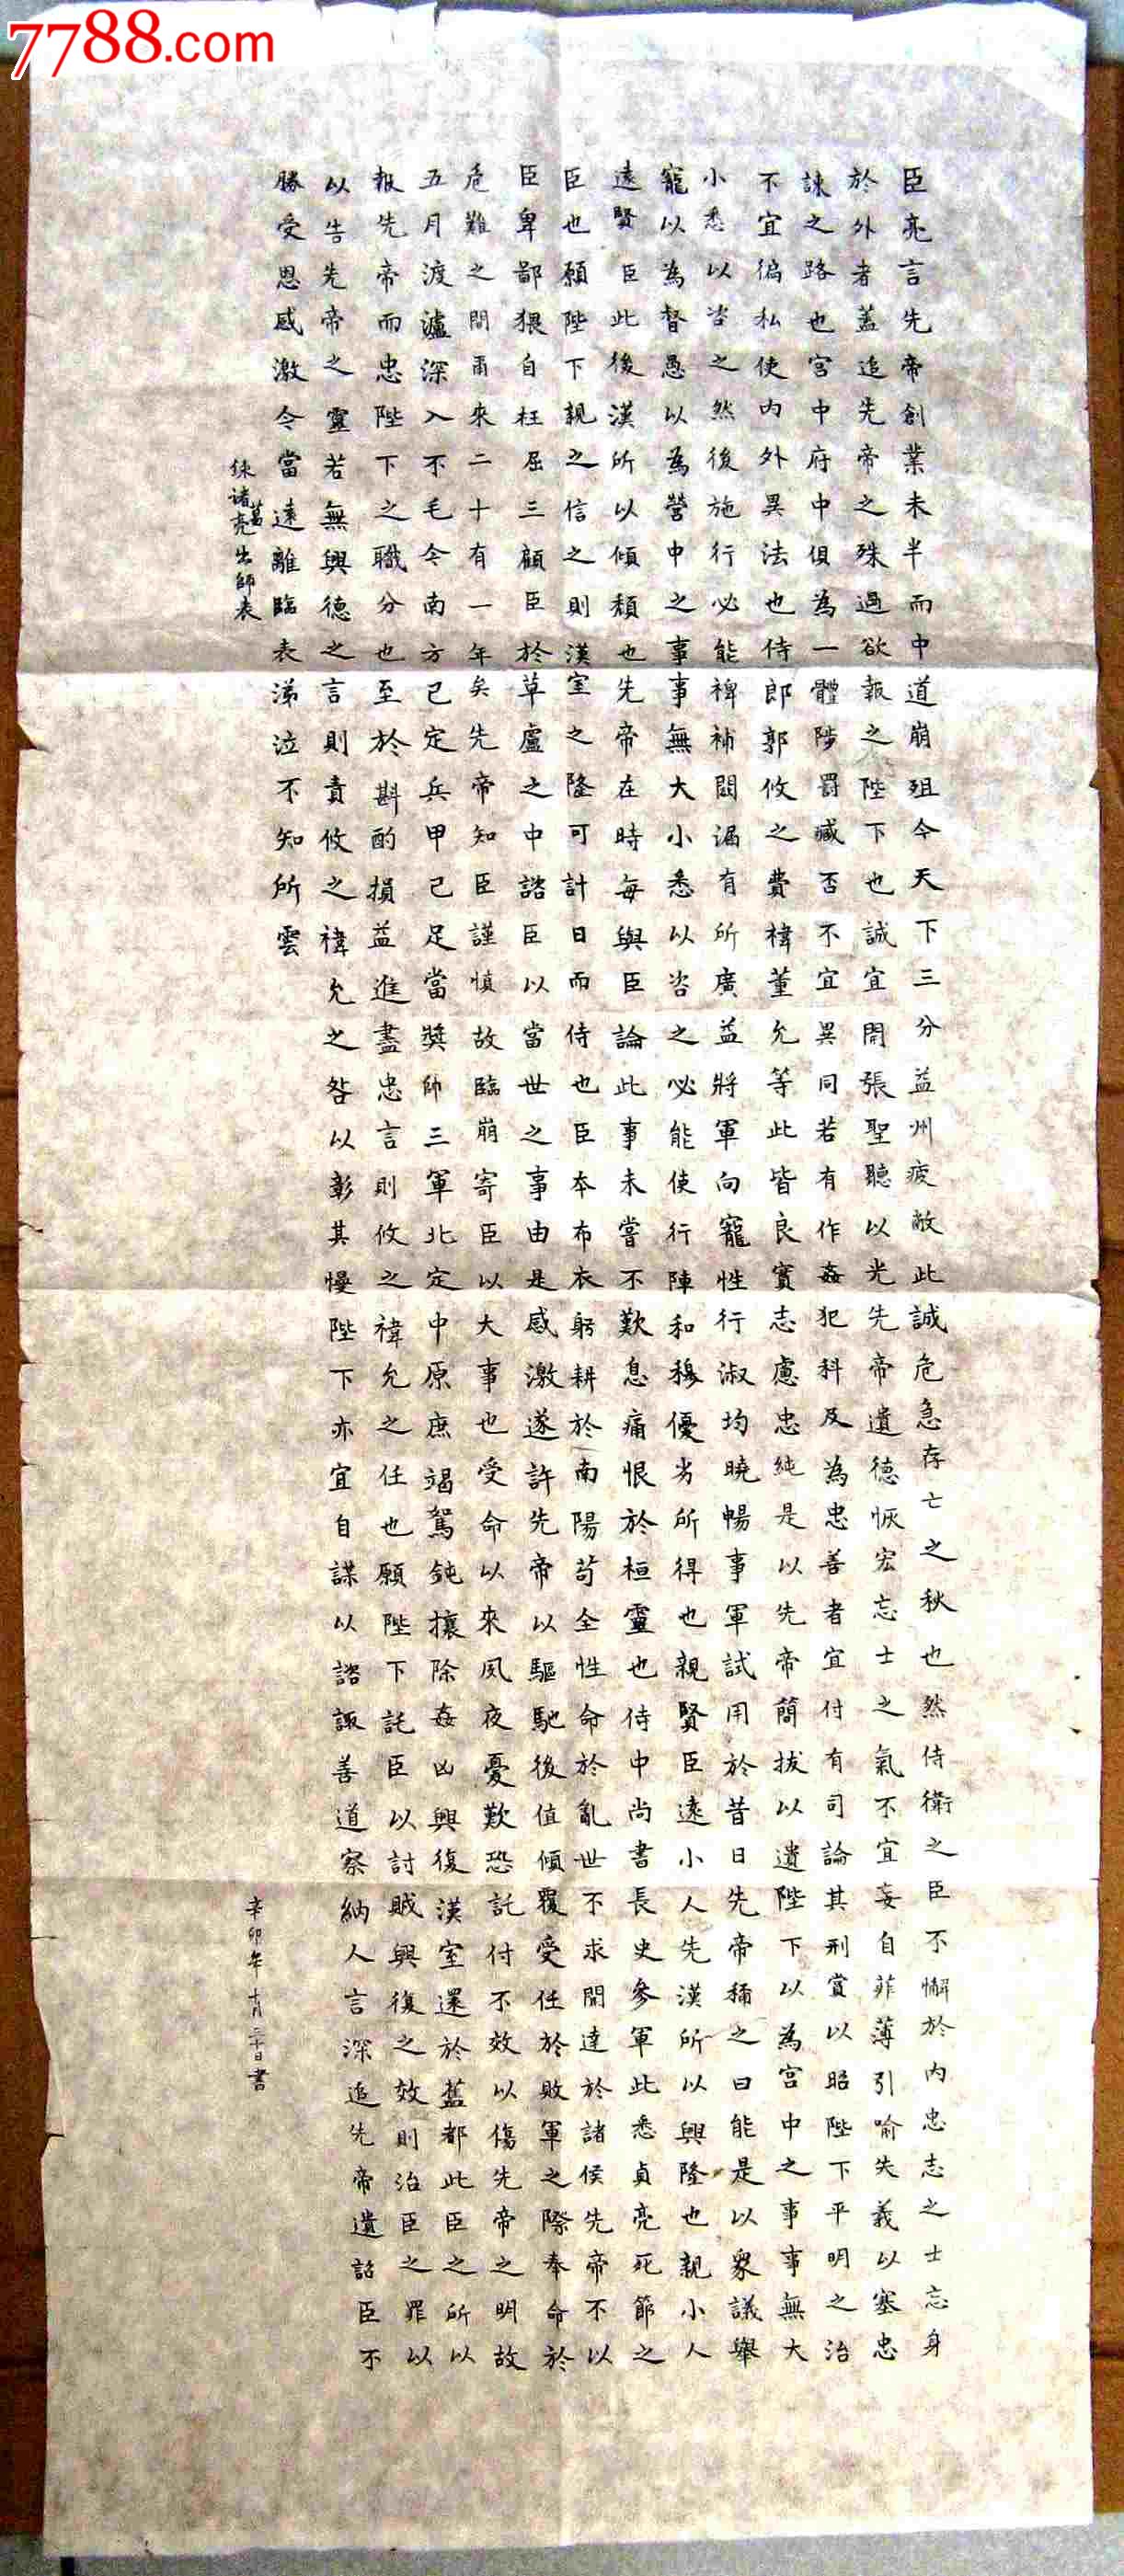 7788.com
臣亮言先帝創業未半而中道崩殂今天下三分益州疲敝此誠危急存亡之秋也然侍衛之臣不懈於內忠志之士忘身
於外者蓋追先帝之殊遇欲報之陛下也誠宜開張聖聽以光先帝遺德恢宏忘士之氣不宜妄自菲薄引喻失義以塞忠
諫之路也宮中府中俱為一體陟罰臧否不宜異同若有作姦犯科及為忠善者宜付有司論其刑賞以昭陛下平明之治
不宜偏私使內外異法也侍郎郭攸之費禕董允等此皆良實志慮忠純是以先帝簡拔以遺陛下以為宮中之事事無大
小悉以咨之然後施行必能裨補闕漏有所廣益將軍向寵性行淑均曉暢事軍試用於昔日先帝稱之曰能是以眾議舉
寵以為督愚以為營中之事事無大小悉以咨之必能使行陣和穆優劣所得也親賢臣遠小人先漢所以興隆也親小人
遠賢臣此後漢所以傾頹也先帝在時每與臣論此事未嘗不歎息痛恨於桓靈也侍中尚書長史參軍此悉貞亮死節之
臣也願陛下親之信之則漢室之隆可計日而侍也臣本布衣躬耕於南陽苟全性命於亂世不求聞達於諸侯先帝不以
臣卑鄙猥自枉屈三顧臣於草廬之中諮臣以當世之事由是感激遂許先帝以驅馳後值傾覆受任於敗軍之際奉命於
危難之間爾來二十有一年矣先帝知臣謹慎故臨崩寄臣以大事也受命以來夙夜憂歎恐託付不效以傷先帝之明故
五月渡瀘深入不毛今南方已定兵甲已足當獎帥三軍北定中原庶竭駑鈍攘除姦凶興復漢室還於舊都此臣之所以
報先帝而忠陛下之職分也至於斟酌損益進盡忠言則攸之禕允之任也願陛下託臣以討賊興復之效則治臣之罪以
以告先帝之靈若無興德之言則責攸之禕允之咎以彰其慢陛下亦宜自謀以諮諏善道察納人言深追先帝遺詔臣不
勝受恩感激令當遠離臨表涕泣不知所雲
諸葛亮出師表
辛卯年十月二十日書